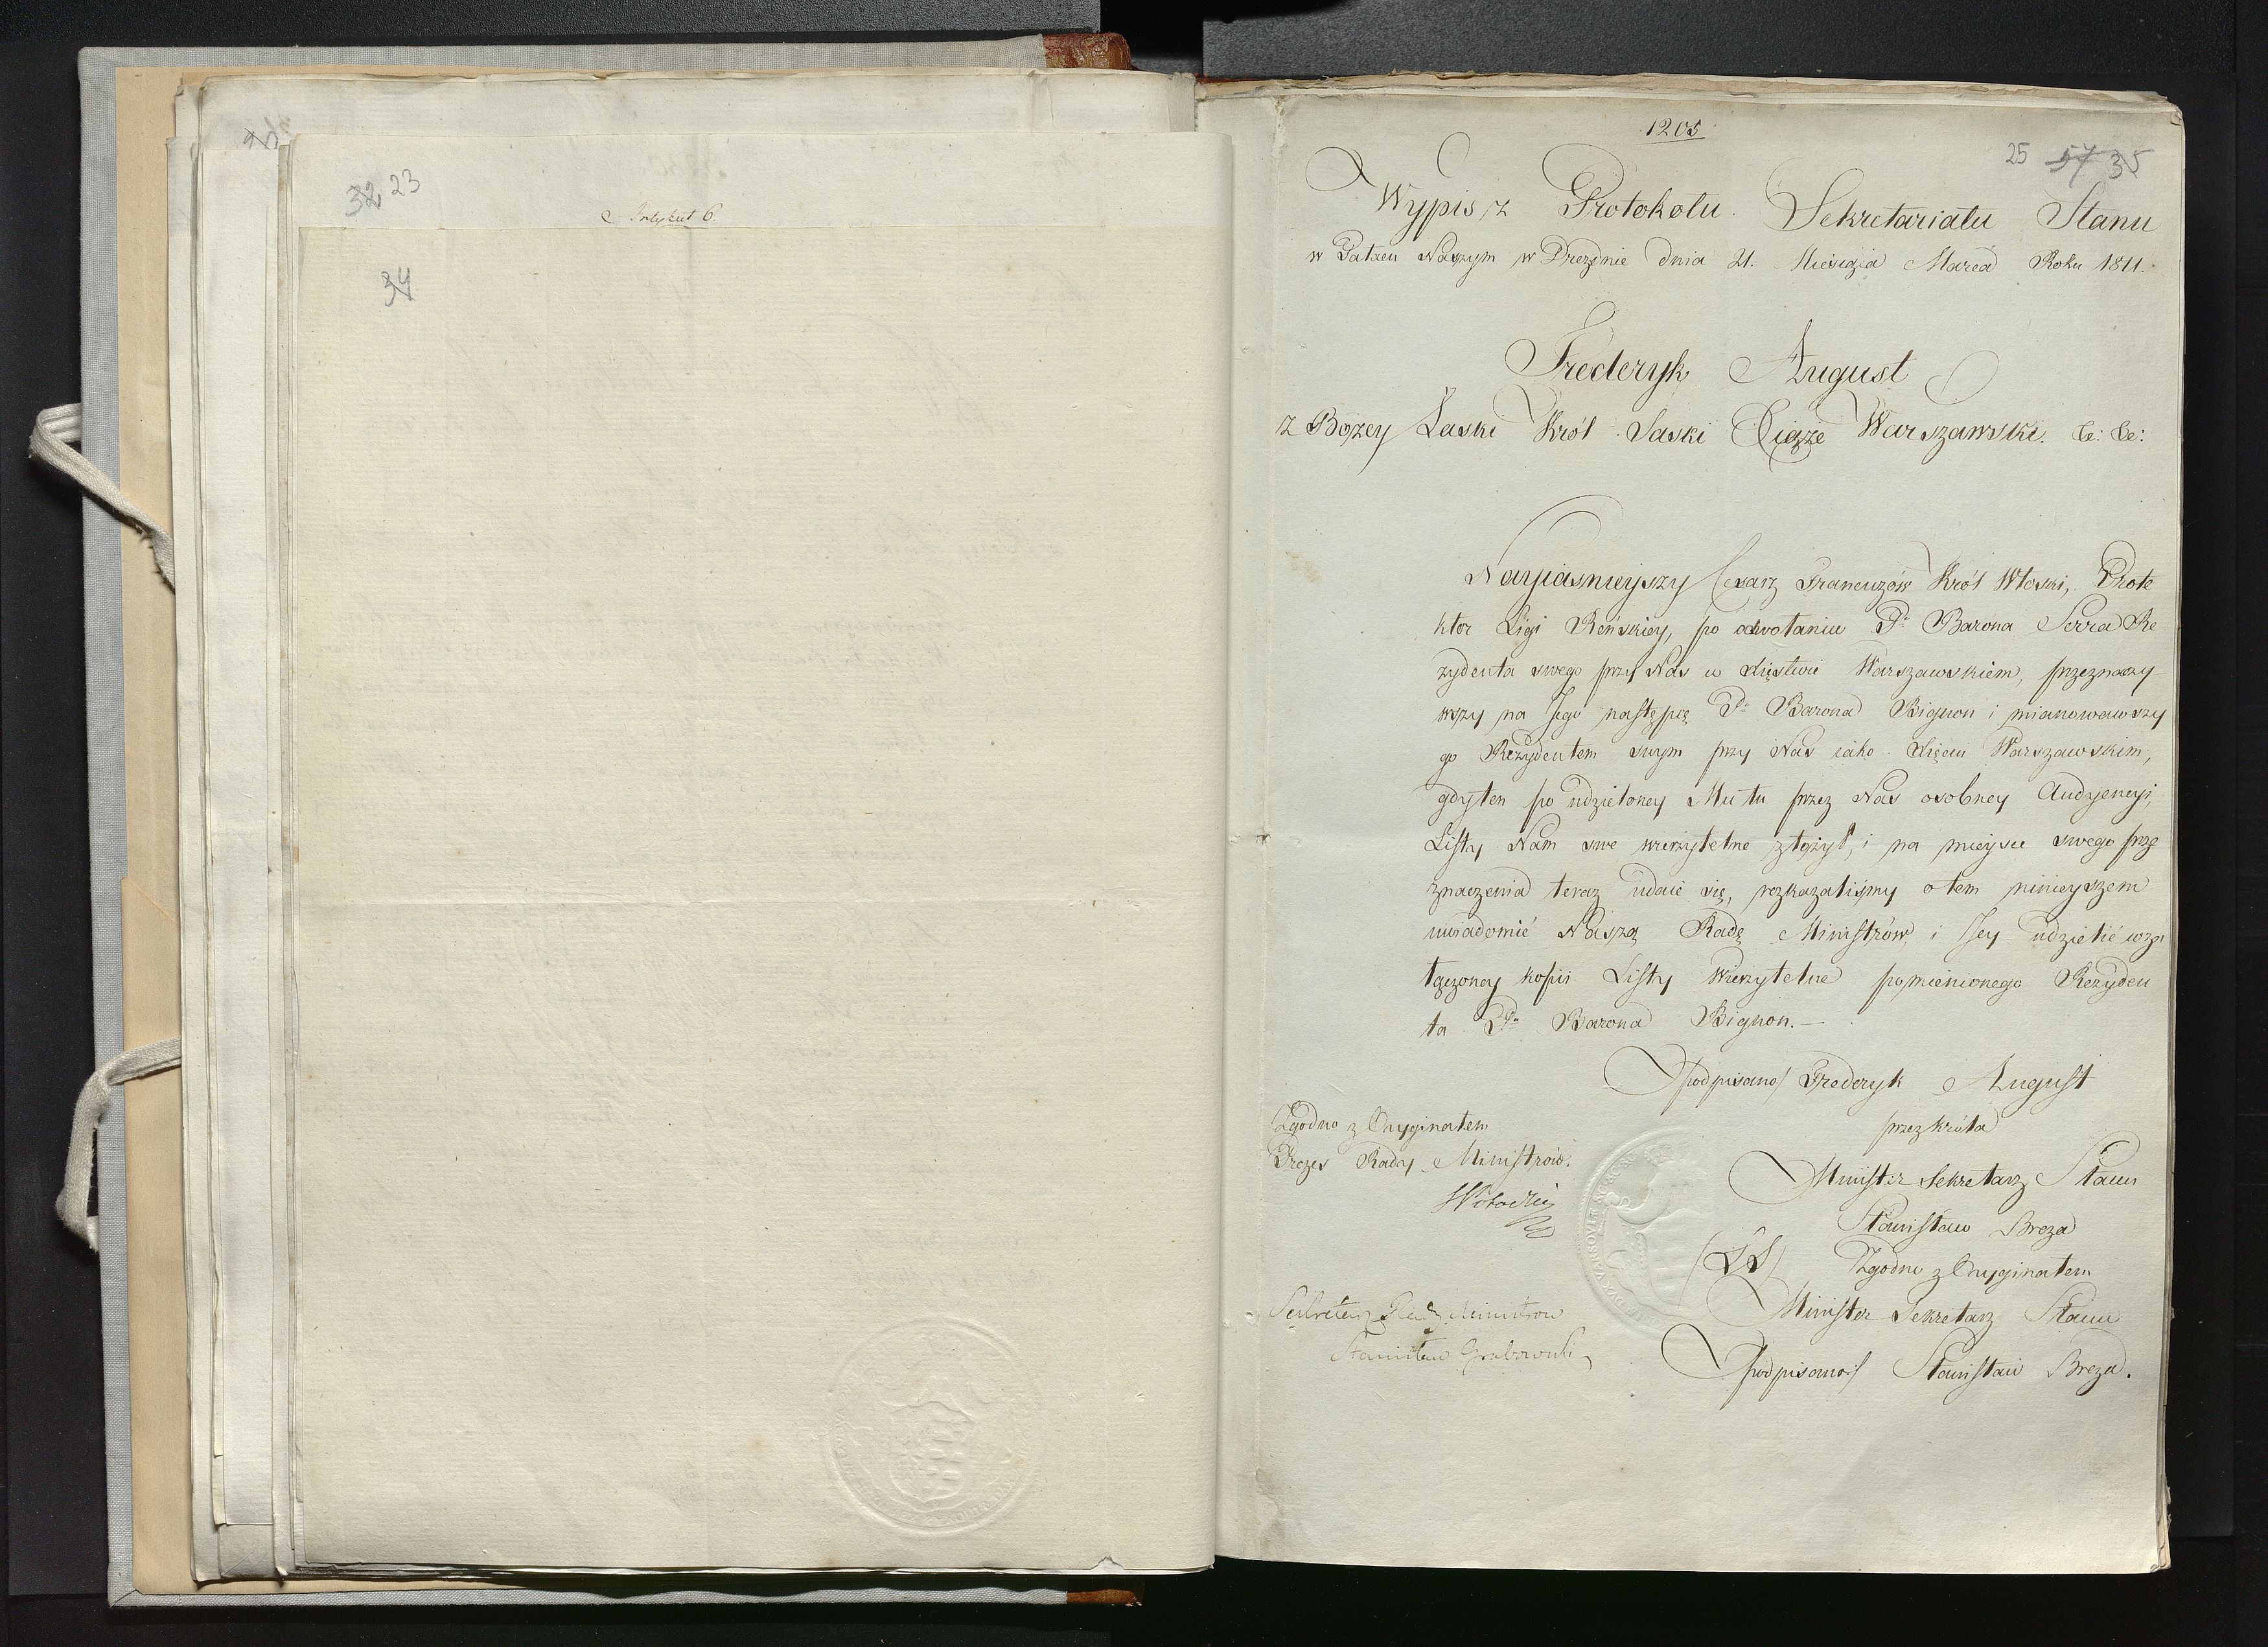 32 23
Artykuł 6.
34
1205
25 57 35
Wypis z Protokołu Sekretariatu Stanu
w Pałacu Naszym w Dreznie dnia 21. Miesiąca Marca Roku 1811.
Frederyk August
z Bożey Łaski Król Saski Xiąże Warszawski. &c: &c:
Nayiasnieyszy Cesarz Francuzów Król Włoski, Prote
ktor Ligi Reńskiey, po odwołaniu Pa Barona Serra Re
zydenta swego przy Nas w Xięstwie Warszawskiem, przeznaczy
wszy na Jego następcę Pa Barona Bignon i mianowawszy
go Rezydentem swym przy Nas iako Xięciu Warszawskim,
gdy ten po udzieloney Mu tu przez Nas osobney Audyencyi,
Listy Nam swe wierzytelne złożył, i na mieysce swego prze
znaczenia teraz udaie się, rozkazaliśmy o tem ninieyszem
uwiadomić Naszą Radę Ministrów i Jey udzielić w za
łączoney kopii Listy Wierzytelne pomienionego Rezyden
ta Pa Barona Bignon.—
/podpisano/ Frederyk August
przez Króla
Minister Sekretarz Stanu
Stanisław Breza
(LS) Zgodno z Oryginałem
Minister Sekretarz Stanu
/podpisano:/ Stanisław Breza.
Zgodno z Oryginałem
Prezes Rady Ministrów.
Sekretarz Rady Ministrow
Stanisław Grabowski